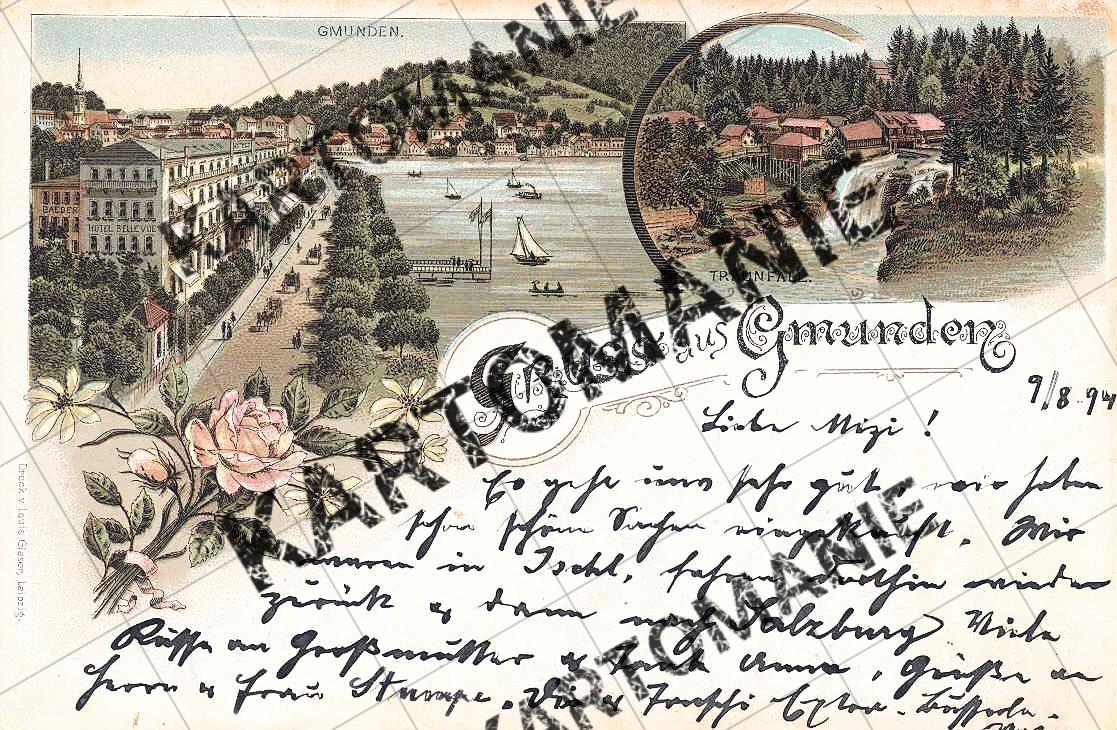 GMUNDEN.
BALDER
HOTEL BELLEVUE
TRAUNFALL.
Gruss aus Gmunden
9/8 94
Liebe Mizi!
Es geht uns sehr gut, wir haben
schon schöne Sachen eingekauft. Wir
waren in Ischl, fahren dorthin wieder
zurück & dann nach Salzburg Viele
Küsse an Großmutter & Tante Anna, Grüße an
Herrn & Frau
Druck v. Louis Glaser, Leipzig.
KARTOMANIE
KARTOMANIE
KARTOMANIE